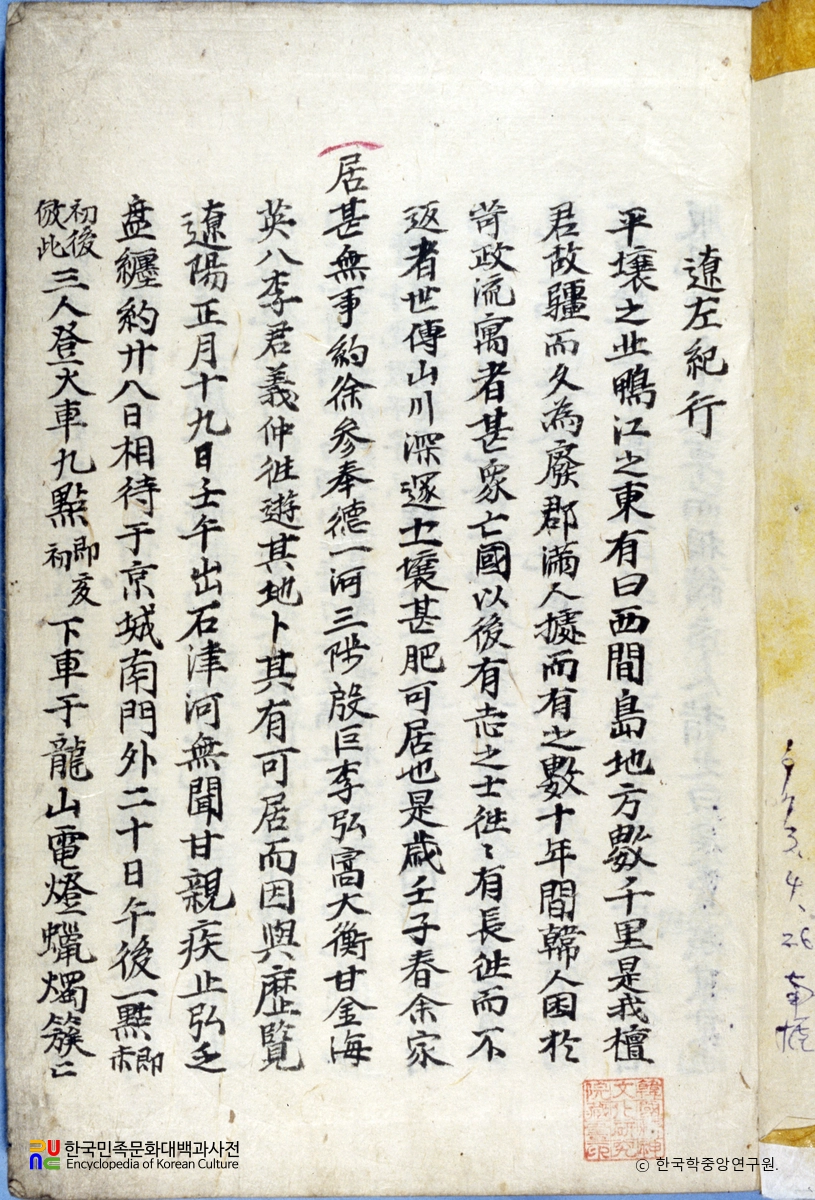 遼左紀行
平壤之北鴨江之東有曰西間島地方數千里是我檀
君故疆而久為廢郡滿人據而有之數十年間韓人困於
苛政流寓者甚衆亡國以後有志之士徃〻有長徃而不
返者世傳山川深邃土壤甚肥可居也是歲壬子春余家
居甚無事約徐參奉德一河三陟殷巨李弘窩大衡甘金海
英八李君義仲徃遊其地卜其有可居而因與歷覽
遼陽正月十九日壬午出石津河無聞甘親疾止弘乏
盘纏約廿八日相待于京城南門外二十日午後一點即未
初後倣此三人登火車九點即亥初下車于龍山電燈蠟燭簇〻
韓國精神
文化研究
院藏書印
한국민족문화대백과사전
Encyclopedia of Korean Culture
© 한국학중앙연구원.